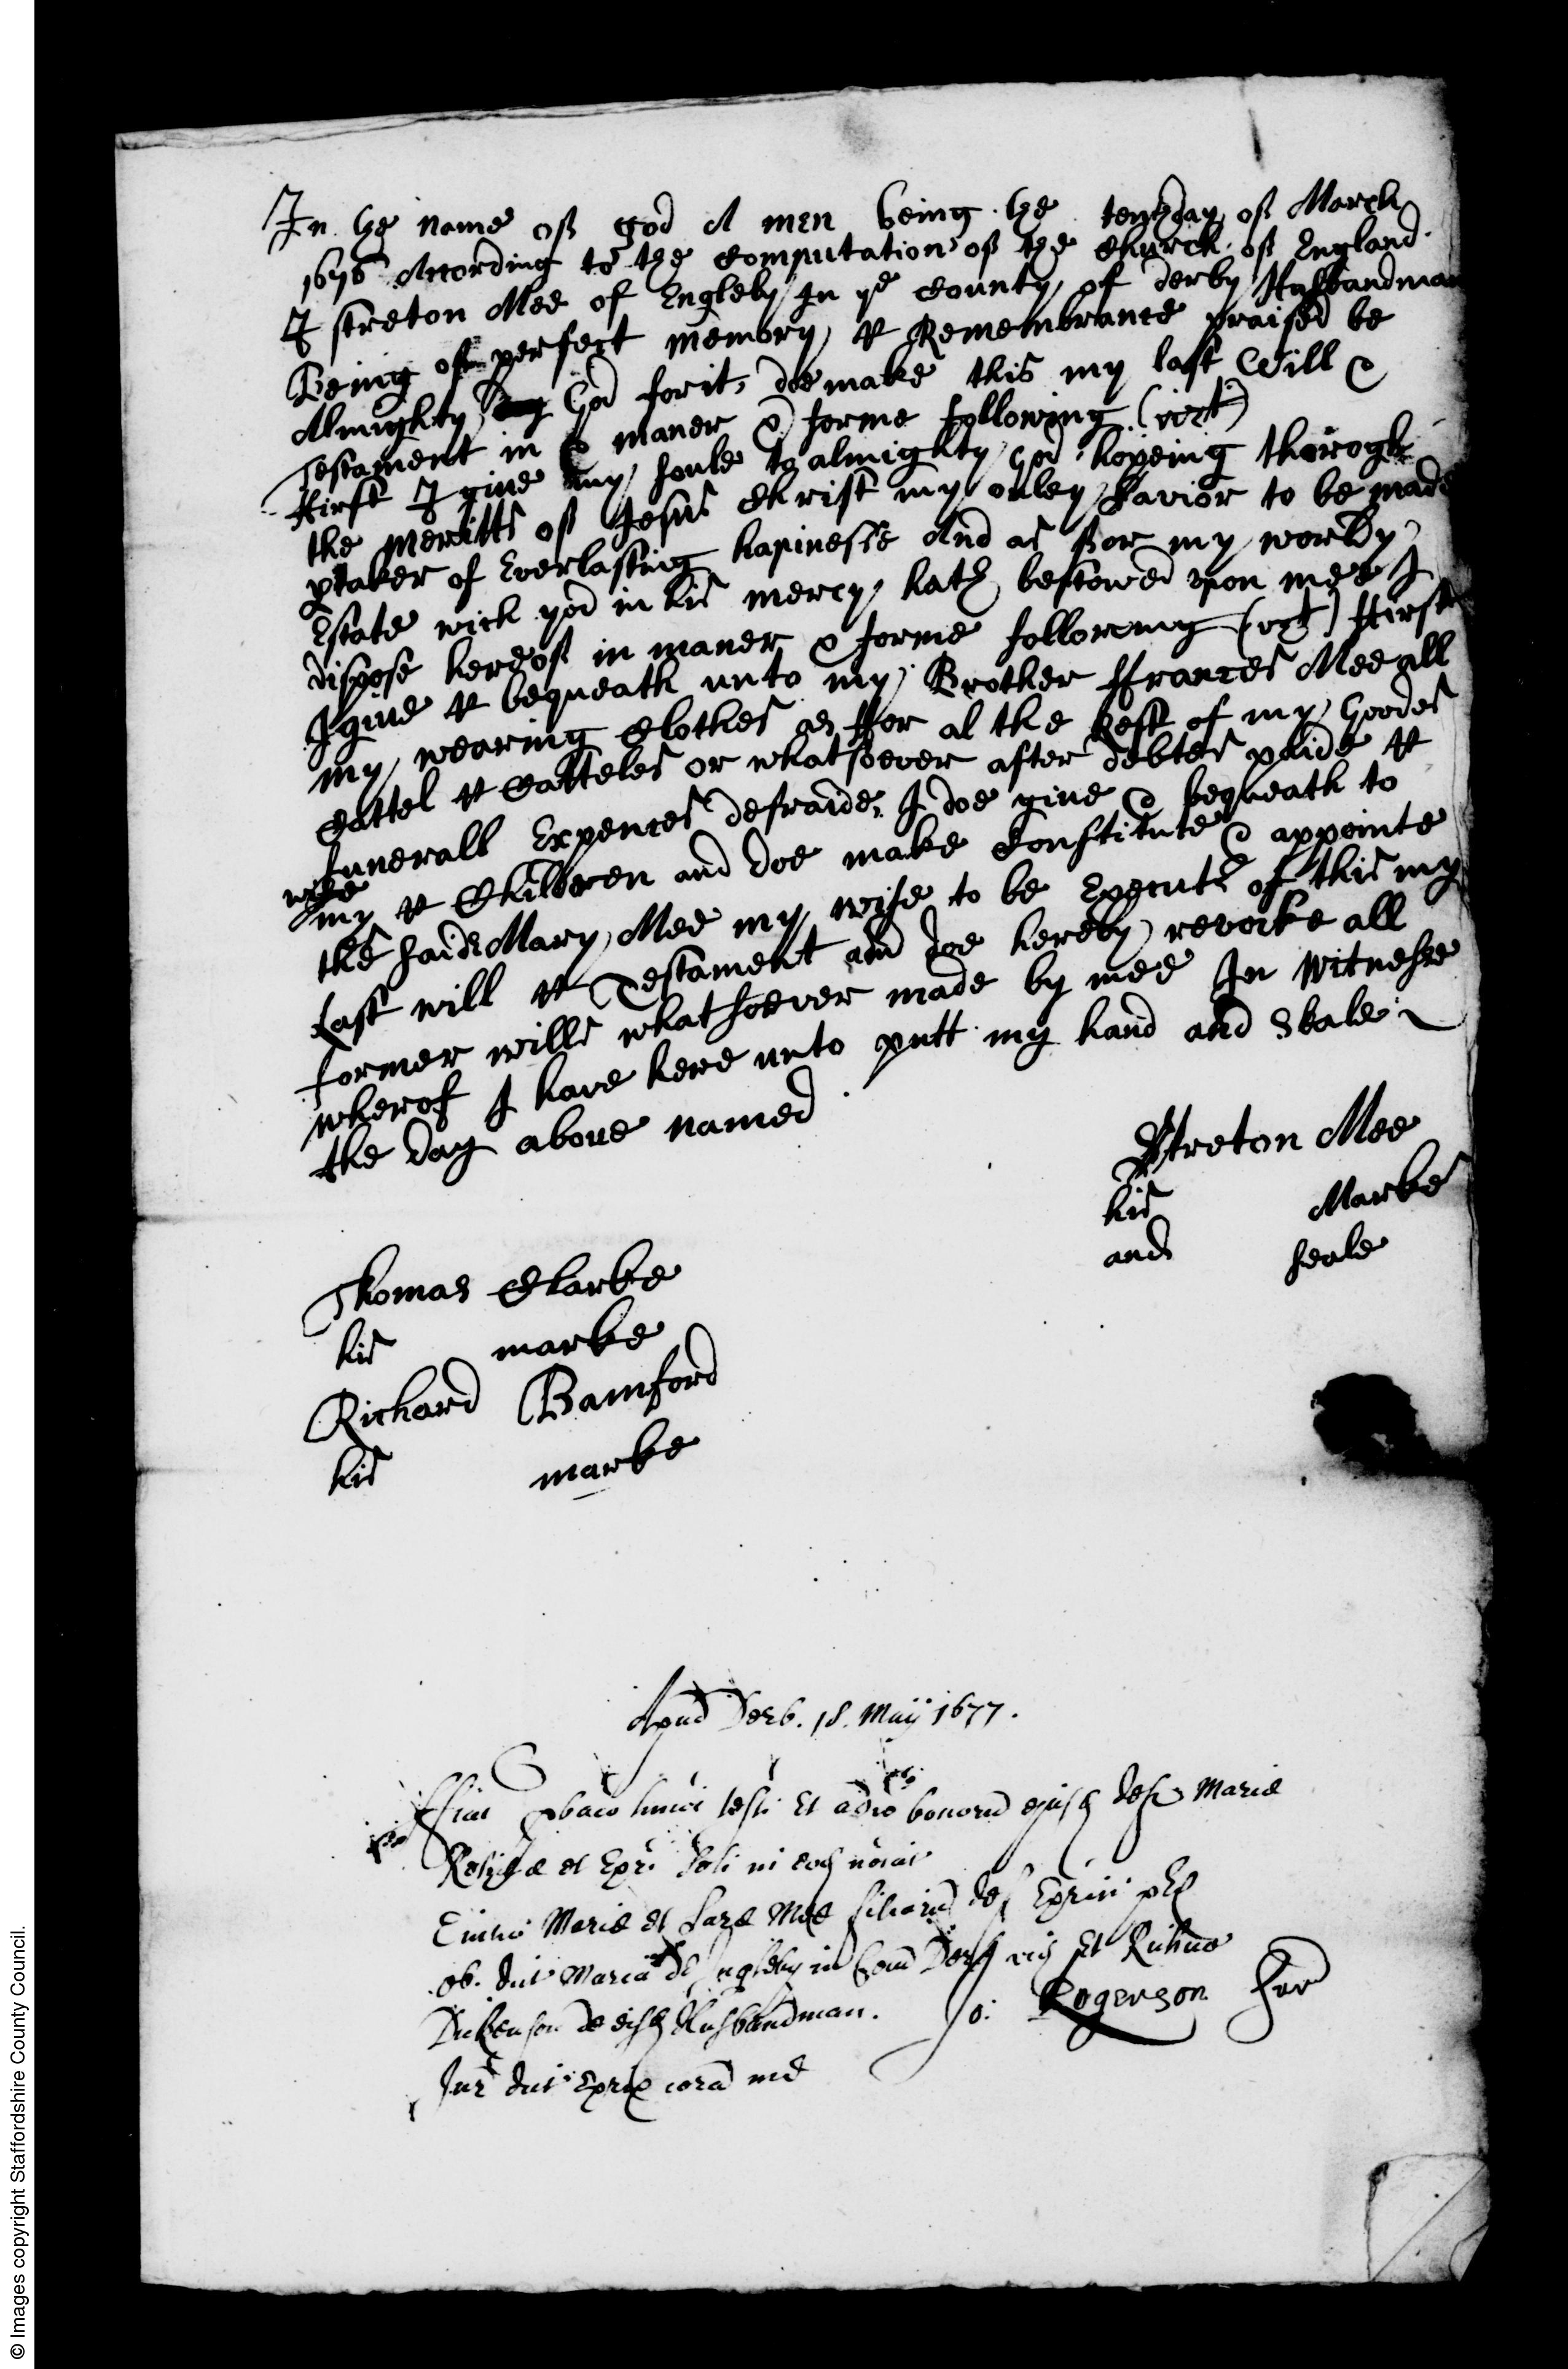 In the name of god A men being the tenthday of March
1676 According to the Computation of the Church of England
I streton Mee of Engleby In ye County of derby Husbandman
Being of perfect memory & Remembrance praised be
Almighty God for it, doe make this my last Will &
Testament in maner & forme following (vizt)
ffirst I give my soule to almighty god hopeing thorogh
the meritts of Jesus Christ my onley Savior to be made
ptaker of Everlasting hapinesse And as for my worldy
Estate wich god in his mercy hath bestowed upon mee I
dispose hereof in maner & forme following (vizt) ffirst
I give & bequeath unto my Brother ffrances Mee all
my wearing Clothes as ffor al the Rest of my Goodes
Cattel & Catteles or whatsoever after debtes paide &
funerall Expences defraide, I doe give & bequeath to
wife
my & Children and doe make Constitute & appointe
the said Mary Mee my wife to be Execut of this my
Last will & Testament and doe hereby revoike all
former wills whatsoever made by mee In Witnesse
wherof I have here unto putt my hand and Seale
the day above named
Streton Mee
his Marke
and seale
Thomas Clarke
his marke
Richard Bamford
his marke
Apud Derb. 18. Maij 1677.
ffiat pbaco hmoi testi Et adio bonoru ejusd def Mariæ
Relictæ et Expr soli in eod noiat
Mariæ et Saræ Mee filiaru def
ob. dict Maria de Ingleby in Com Derb vid Et
de ead Husbandman. Jo: Rogerson Sur
Jur dict Exprix cora me
© Images copyright Staffordshire County Council.